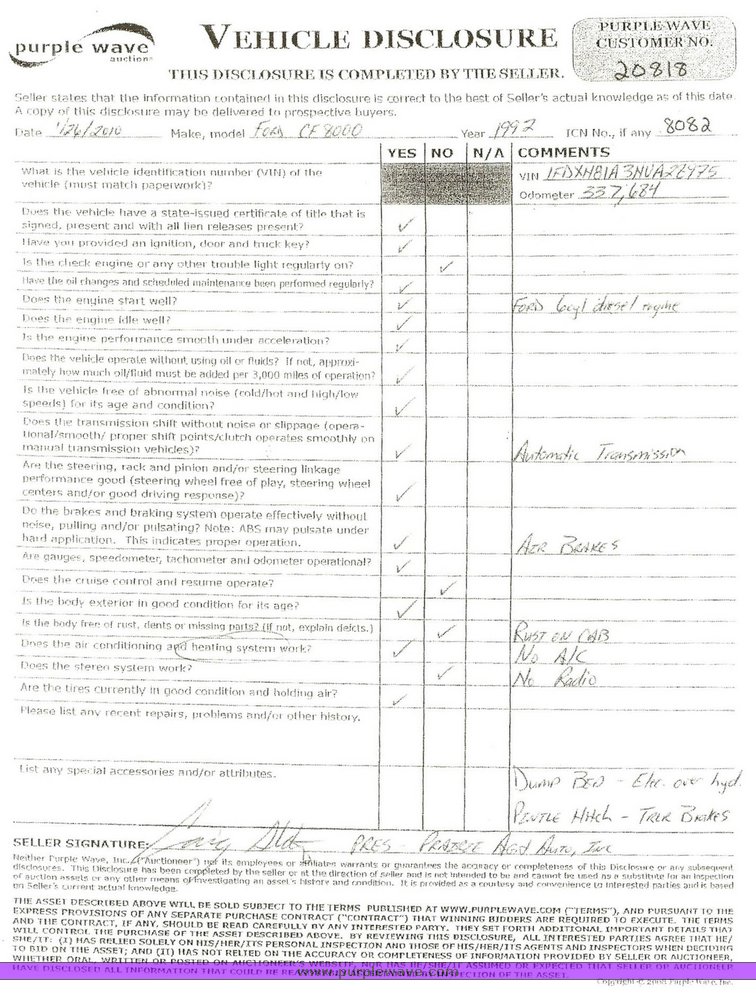 purple wave
auction
VEHICLE DISCLOSURE
THIS DISCLOSURE IS COMPLETED BY THE SELLER.
PURPLE WAVE
CUSTOMER NO.
20818
Seller states that the information contained in this disclosure is correct to the best of Seller's actual knowledge as of this date.
A copy of this disclosure may be delivered to prospective buyers.
Date 1/26/2010 Make, model Ford CF8000 Year 1992 ICN No., if any 8082
YES NO N/A COMMENTS
What is the vehicle identification number (VIN) of the
vehicle (must match paperwork)?
VIN
Odometer 337,684
Does the vehicle have a state-issued certificate of title that is
signed, present and with all lien releases present? ✓
Have you provided an ignition, door and truck key? ✓
Is the check engine or any other trouble light regularly on? ✓
Have the oil changes and scheduled maintenance been performed regularly? ✓
Does the engine start well? ✓ Ford 6cyl diesel engine
Does the engine idle well? ✓
Is the engine performance smooth under acceleration? ✓
Does the vehicle operate without using oil or fluids? If not, approxi-
mately how much oil/fluid must be added per 3,000 miles of operation? ✓
Is the vehicle free of abnormal noise (cold/hot and high/low
speeds) for its age and condition? ✓
Does the transmission shift without noise or slippage (opera-
tional/smooth/ proper shift points/clutch operates smoothly on
manual transmission vehicles)? ✓ Automatic Transmission
Are the steering, rack and pinion and/or steering linkage
performance good (steering wheel free of play, steering wheel
centers and/or good driving response)? ✓
Do the brakes and braking system operate effectively without
noise, pulling and/or pulsating? Note: ABS may pulsate under
hard application. This indicates proper operation. ✓ Air Brakes
Are gauges, speedometer, tachometer and odometer operational? ✓
Does the cruise control and resume operate? ✓
Is the body exterior in good condition for its age? ✓
Is the body free of rust, dents or missing parts? (If not, explain defects.) ✓ Rust on Cab
Does the air conditioning and heating system work? ✓ No A/C
Does the stereo system work? ✓ No Radio
Are the tires currently in good condition and holding air? ✓
Please list any recent repairs, problems and/or other history.
List any special accessories and/or attributes. Dump Bed - Elec. over hyd.
Pintle Hitch - Trlr Brakes
SELLER SIGNATURE: PRES - Prairie Auto, Inc
Neither Purple Wave, Inc. ("Auctioneer") not its employees or affiliates warrants or guarantees the accuracy or completeness of this Disclosure or any subsequent
disclosures. This Disclosure has been completed by the seller or at the direction of seller and is not intended to be and cannot be used as a substitute for an inspection
of auction assets or any other means of investigating an asset's history and condition. It is provided as a courtesy and convenience to interested parties and is based
on Seller's current actual knowledge.
THE ASSET DESCRIBED ABOVE WILL BE SOLD SUBJECT TO THE TERMS PUBLISHED AT WWW.PURPLEWAVE.COM ("TERMS"), AND PURSUANT TO THE
EXPRESS PROVISIONS OF ANY SEPARATE PURCHASE CONTRACT ("CONTRACT") THAT WINNING BIDDERS ARE REQUIRED TO EXECUTE. THE TERMS
AND THE CONTRACT, IF ANY, SHOULD BE READ CAREFULLY BY ANY INTERESTED PARTY. THEY SET FORTH ADDITIONAL IMPORTANT DETAILS THAT
WILL CONTROL THE PURCHASE OF THE ASSET DESCRIBED ABOVE. BY REVIEWING THIS DISCLOSURE, ALL INTERESTED PARTIES AGREE THAT HE/
SHE/IT: (I) HAS RELIED SOLELY ON HIS/HER/ITS PERSONAL INSPECTION AND THOSE OF HIS/HER/ITS AGENTS AND INSPECTORS WHEN DECIDING
TO BID ON THE ASSET; AND (II) HAS NOT RELIED ON THE ACCURACY OR COMPLETENESS OF INFORMATION PROVIDED BY SELLER OR AUCTIONEER,
WHETHER ORAL, WRITTEN OR POSTED ON AUCTIONEER'S WEBSITE, NOR HAS HE/SHE/IT ASSUMED OR EXPECTED THAT SELLER OR AUCTIONEER
HAVE DISCLOSED ALL INFORMATION THAT COULD BE INSPECTION OF THE ASSET.
www.purplewave.com
Copyright © 2008 Purple Wave, Inc.